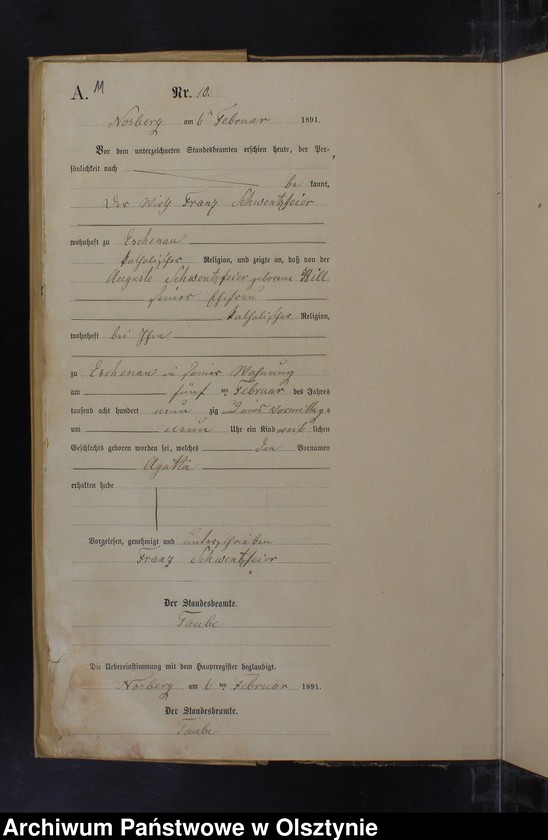 A. M Nr. 10.
Norberg am 6 Februar 1891.
Vor dem unterzeichneten Standesbeamten erschien heute, der Per-
sönlichkeit nach
be kannt,
Der Franz Schwentzfeier
wohnhaft zu Eschenau
katholischer Religion, und zeigte an, daß von der
Auguste Schwentzfeier geborene Hill
seiner Ehefrau
katholischer Religion,
wohnhaft bei Ihm
zu Eschenau in seiner Wohnung
am fünf ten Februar des Jahres
tausend acht hundert neun zig und eins Vormittags
um neun Uhr ein Kind weib lichen
Geschlechts geboren worden sei, welches den Vornamen
Agatha
erhalten habe
Vorgelesen, genehmigt und unterschrieben
Franz Schwentzfeier
Der Standesbeamte.
Taube
Die Uebereinstimmung mit dem Hauptregister beglaubigt.
Norberg am 6 ten Februar 1891.
Der Standesbeamte.
Taube
Archiwum Państwowe w Olsztynie